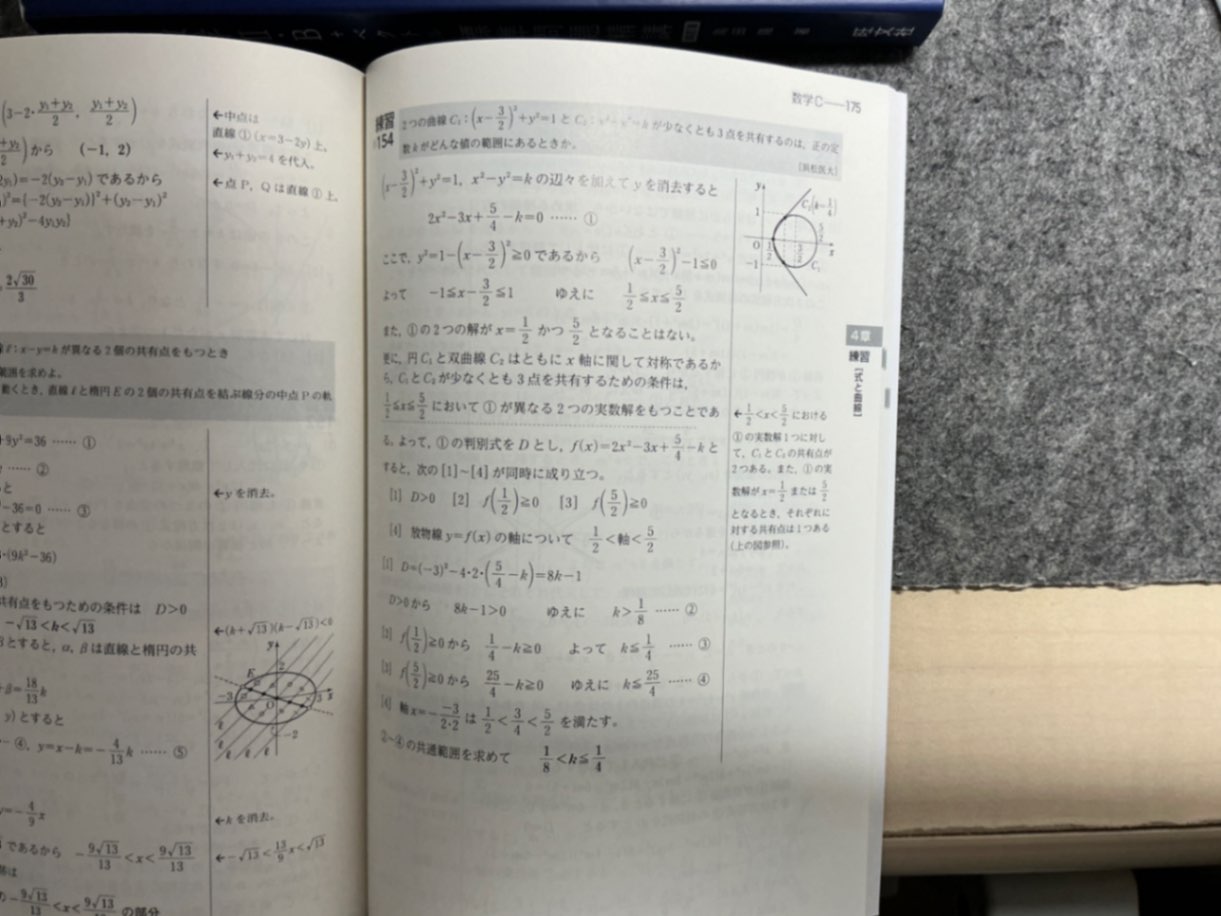 旺文社
(3−2・(y₁+y₂)/2, (y₁+y₂)/2)
から (−1, 2)
であるから
2√30/3
←中点は
直線①(x=3−2y)上。
←y₁+y₂=4を代入。
←点P，Qは直線①上。
:x−y=kが異なる2個の共有点をもつとき
範囲を求めよ。
動くとき，直線ℓと楕円Eの2個の共有点を結ぶ線分の中点Pの軌
+9y²=36 …… ①
…… ②
と
−36=0 …… ③
とすると
・(9k²−36)
共有点をもつための条件は D>0
−√13<k<√13
βとすると，α，βは直線と楕円の共
+β=18/13 k
y)とすると
④，y=x−k=−4/13 k …… ⑤
y=−4/9 x
であるから −9√13/13<x<9√13/13
の −9√13/13<x<9√13/13 の部分
←yを消去。
←(k+√13)(k−√13)<0
y
E
2
−3
O
3
x
−2
ℓ
ℓ ℓ ℓ
←kを消去。
←−√13<13/9 x<√13
数学C——175
練習
154
2つの曲線C₁：(x−3/2)²+y²=1とC₂：x²−y²=kが少なくとも3点を共有するのは，正の定
数kがどんな値の範囲にあるときか。
[浜松医大]
(x−3/2)²+y²=1，x²−y²=kの辺々を加えてyを消去すると
2x²−3x+5/4−k=0 …… ①
ここで，y²=1−(x−3/2)²≧0であるから (x−3/2)²−1≦0
よって −1≦x−3/2≦1 ゆえに 1/2≦x≦5/2
また，①の2つの解がx=1/2かつ5/2となることはない。
更に，円C₁と双曲線C₂はともにx軸に関して対称であるか
ら，C₁とC₂が少なくとも3点を共有するための条件は，
1/2≦x≦5/2において①が異なる2つの実数解をもつことであ
る。よって，①の判別式をDとし，f(x)=2x²−3x+5/4−kと
すると，次の[1]〜[4]が同時に成り立つ。
[1] D>0 [2] f(1/2)≧0 [3] f(5/2)≧0
[4] 放物線y=f(x)の軸について 1/2<軸<5/2
[1] D=(−3)²−4・2・(5/4−k)=8k−1
D>0から 8k−1>0 ゆえに k>1/8 …… ②
[2] f(1/2)≧0から 1/4−k≧0 よって k≦1/4 …… ③
[3] f(5/2)≧0から 25/4−k≧0 ゆえに k≦25/4 …… ④
[4] 軸x=−(−3)/(2・2)は1/2<3/4<5/2を満たす。
②〜④の共通範囲を求めて 1/8<k≦1/4
y
C₂(k=1/4)
1
5/2
O
1/2
3/2
x
−1
C₁
←1/2<x<5/2における
①の実数解1つに対し
て，C₁とC₂の共有点が
2つある。また，①の実
数解がx=1/2または5/2
となるとき，それぞれに
対する共有点は1つある
(上の図参照)。
4章
練習
[式と曲線]